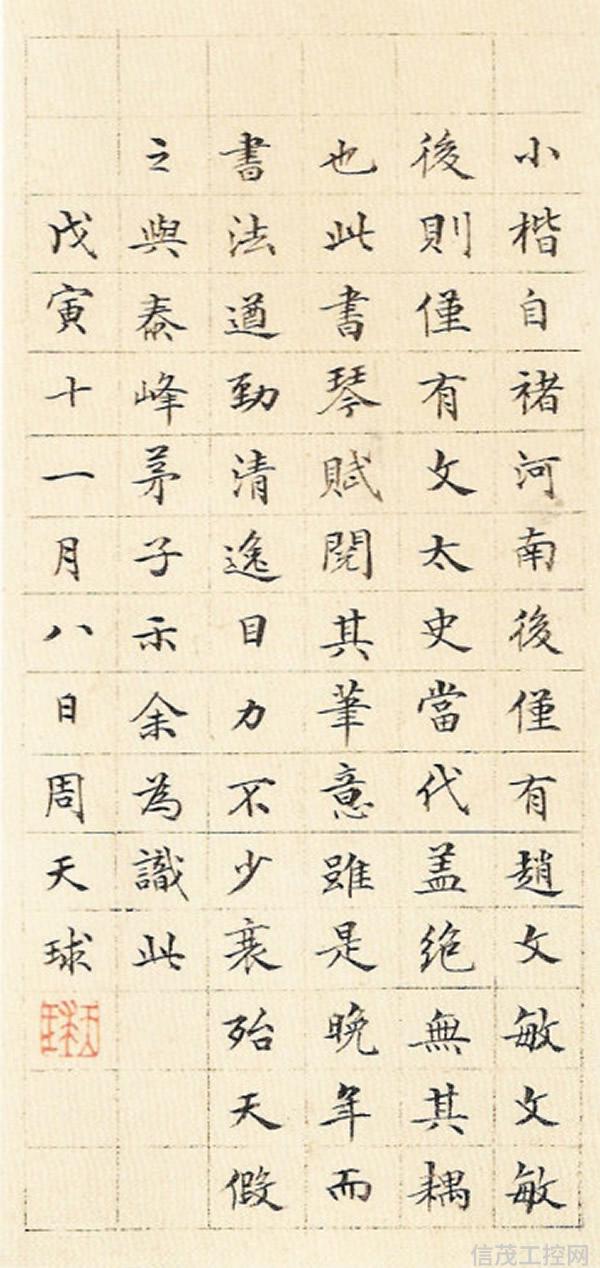 小楷自褚河南後僅有趙文敏文敏
後則僅有文太史當代盖絶無其耦
也此書琴賦閱其筆意雖是晚年而
書法遒勁清逸目力不少衰殆天假
之與泰峰茅子示余為識此
戊寅十一月八日周天球
信茂工控网